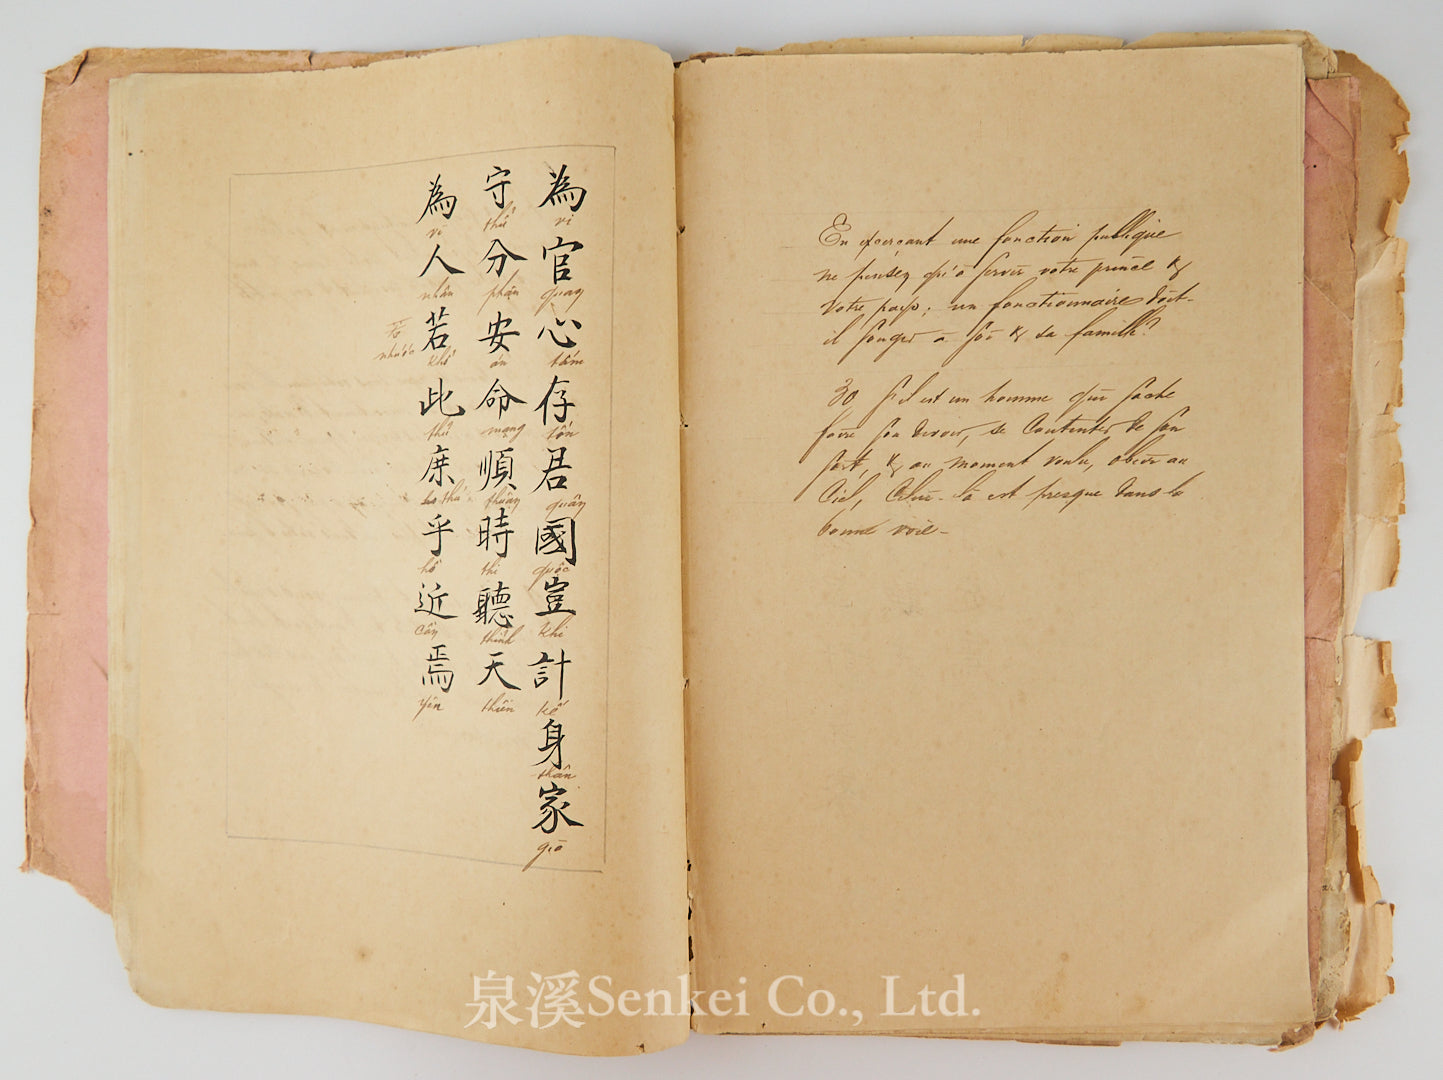 為官心存君國豈計身家
vi quan tâm tồn quân quốc khi kế thân gia
守分安命順時聽天
thủ phận an mạng thuận thì thính thiên
為人若此庶乎近焉
vi nhân khổ thử thứ hồ cận yên
若
nhược
En exerçant une fonction publique
ne pensez qu'à servir votre prince &
votre pays; un fonctionnaire doit-
il songer à soi & sa famille?
30 S'il est un homme qui sache
faire son devoir, se contenter de son
sort, & au moment voulu, obéir au
Ciel, celui-là est presque dans la
bonne voie-
泉溪Senkei Co., Ltd.